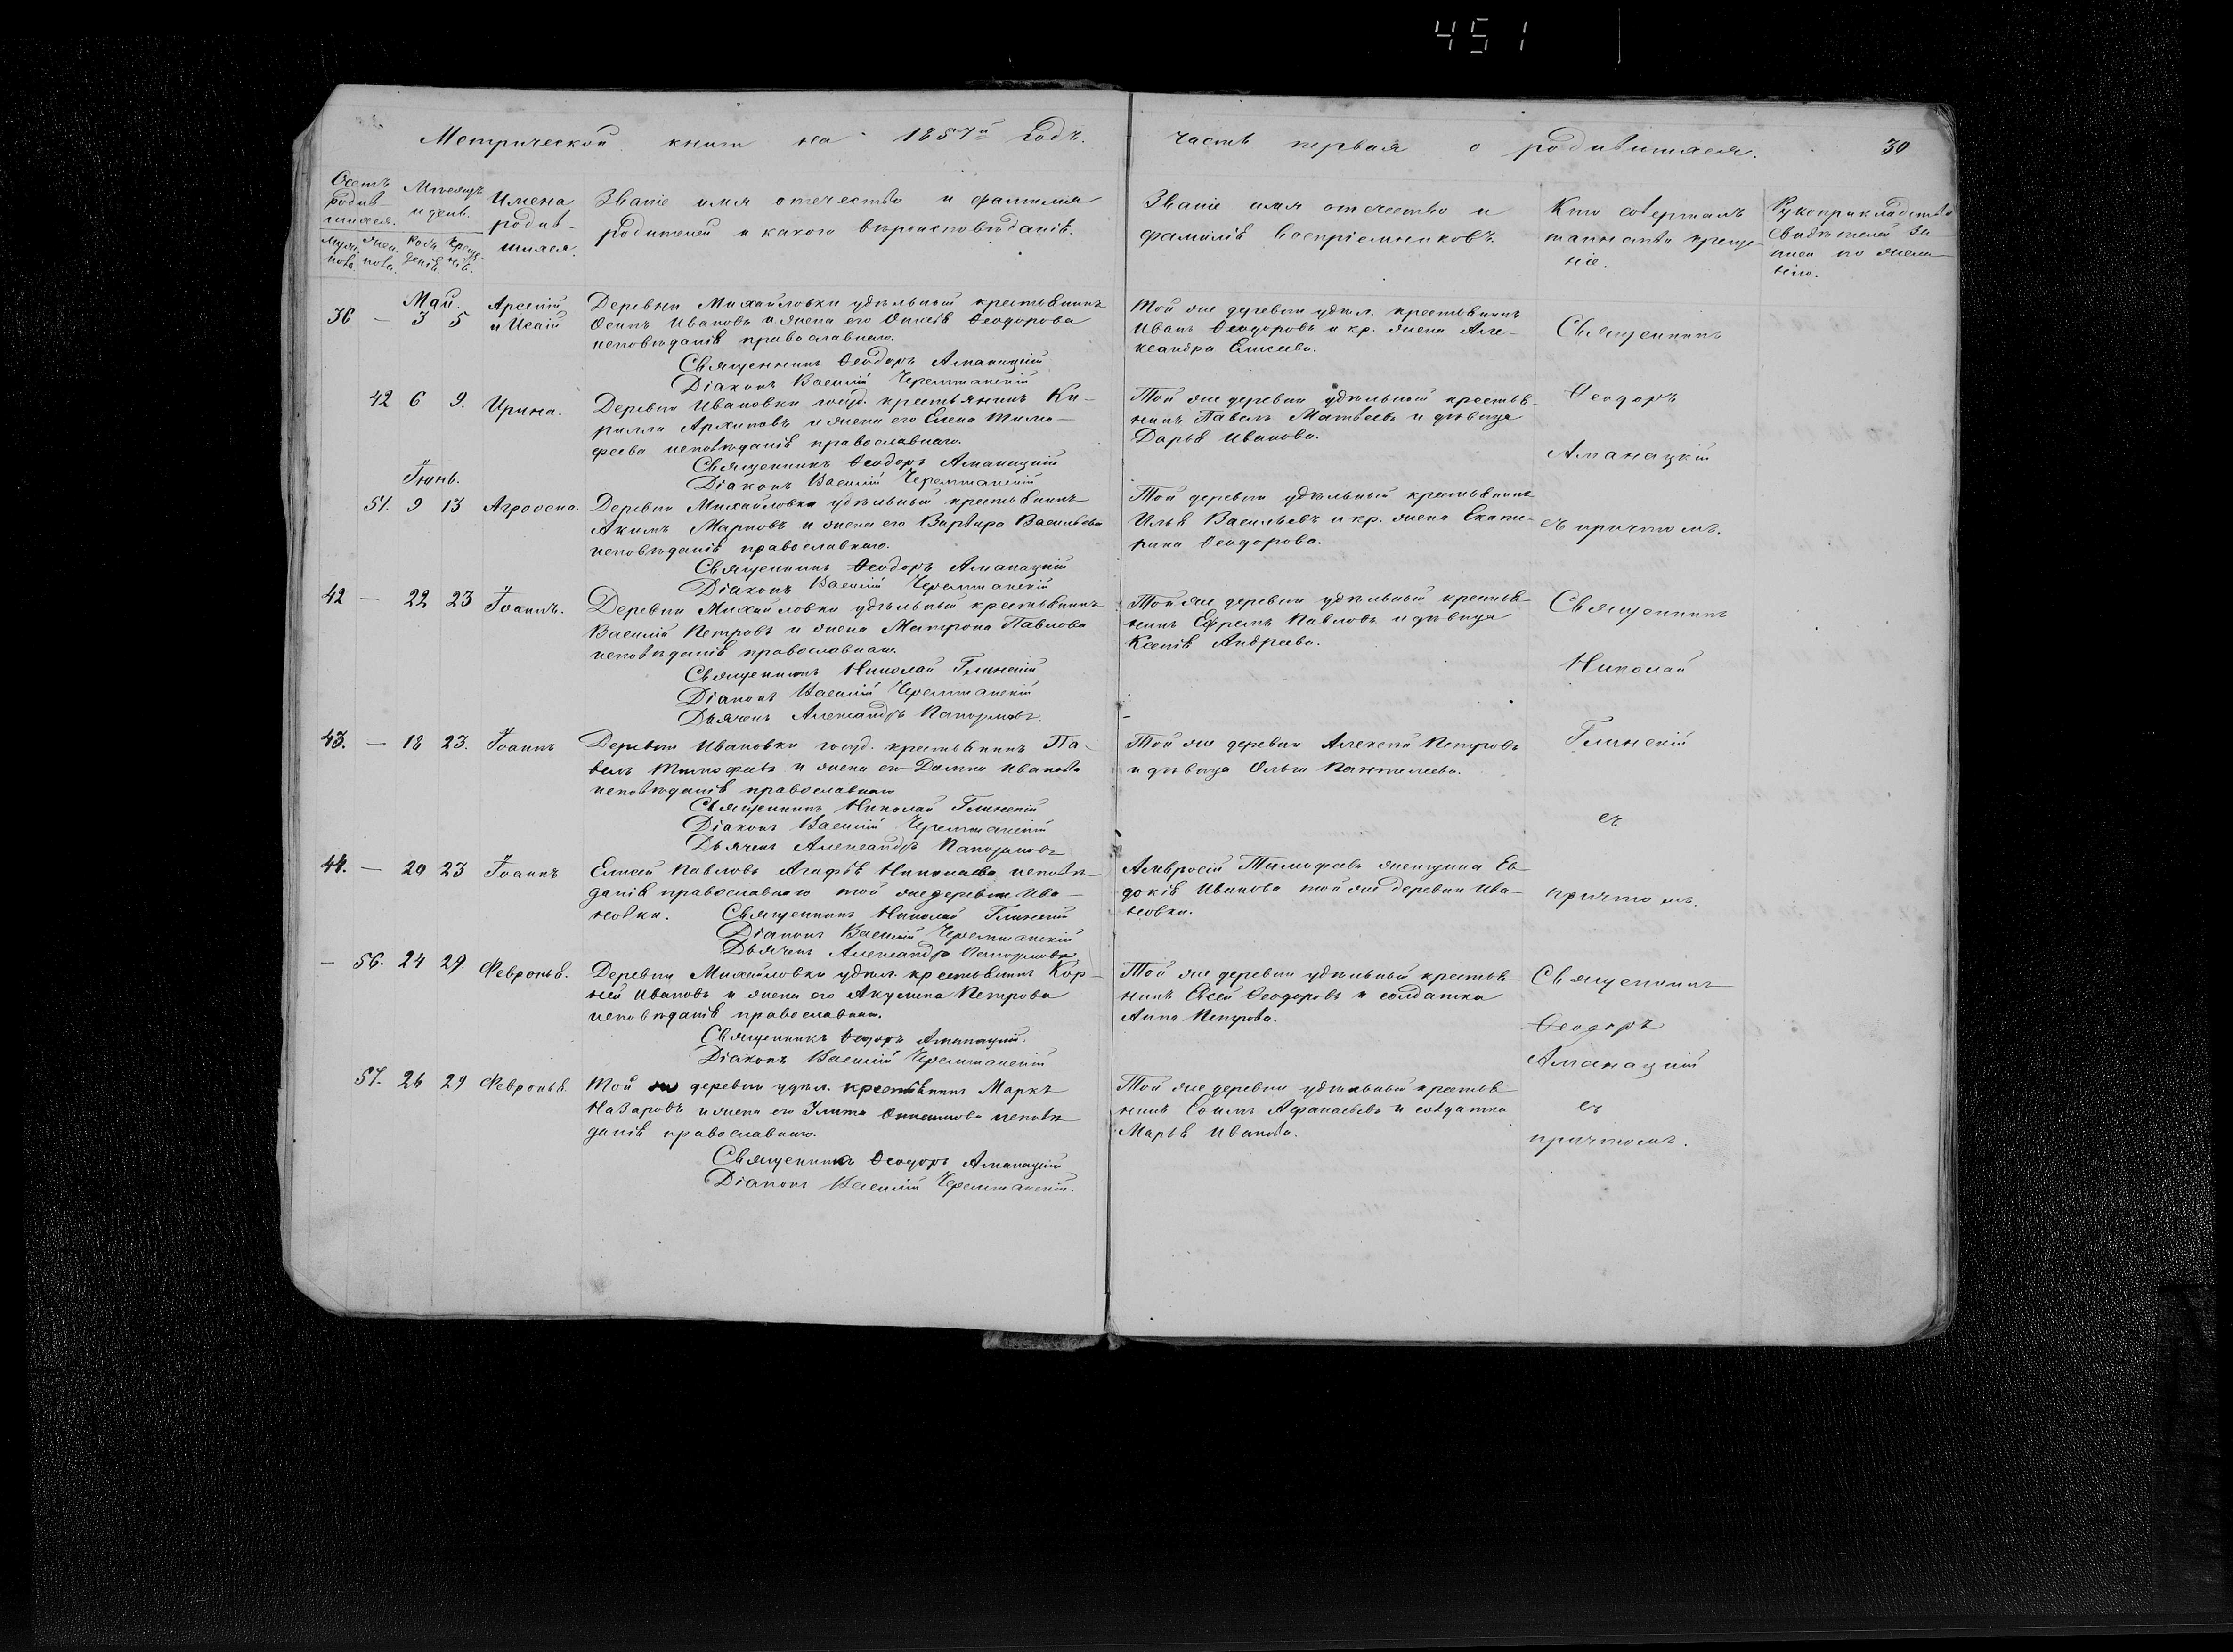 451
Метрической книги на 1857й Годъ.
часть первая о родившихся.
30
Счетъ родив-
шихся.
Мѣсяцъ
и день.
Имена
родив-
шихся.
Званіе имя отечество и фамилія
родителей и какого вѣроисповѣданія.
Званіе имя отечество и
фамилія воспріемниковъ.
Кто совершалъ
таинство креще-
ніе.
Рукоприкладство
свидѣтелей за-
писи по жела-
нію.
Май.
36 — 3 5 Арсеній
и Исаій
Деревни Михайловки удѣльный крестьянинъ
Осипъ Ивановъ и жена его Феодорова
исповѣданія православнаго.
Священникъ Феодоръ Аманацкій
Діаконъ Василій Черемшанскій
Той же деревни удѣл. крестьянинъ
Иванъ Феодоровъ и кр. жена Але-
ксандра Елисеева.
Священникъ
Феодоръ
Аманацкій
съ причтомъ.
42 6 9. Ирина.
Деревни Ивановки госуд. крестьянинъ Ки-
рилла Архиповъ и жена его Елена Тимо-
феева исповѣданія православнаго.
Священникъ Феодоръ Аманацкій
Діаконъ Василій Черемшанскій
Той же деревни удѣльный крестья-
нинъ Павелъ Матвеевъ и дѣвица
Дарья Иванова.
Іюнь.
51. 9 13 Агрофена.
Деревни Михайловка удѣльный крестьянинъ
Акимъ Марковъ и жена его Варвара Васильева
исповѣданія православнаго.
Священникъ Феодоръ Аманацкій
Діаконъ Василій Черемшанскій
Той деревни удѣльный крестьянинъ
Илья Васильевъ и кр. жена Екате-
рина Феодорова.
42 — 22 23 Іоаннъ.
Деревни Михайловки удѣльный крестьянинъ
Василій Петровъ и жена Матрона Павлова
исповѣданія православнаго.
Священникъ Николай Глинскій
Діаконъ Василій Черемшанскій
Дьячекъ Александръ
Той же деревни удѣльный крестья-
нинъ Ефремъ Павловъ и дѣвица
Ксенія Андреева.
Священникъ
Николай
Глинскій
съ
причтомъ.
43. — 18 23. Іоаннъ
Деревни Ивановки госуд. крестьянинъ Па-
велъ Тимофеевъ и жена его Домна Иванова
исповѣданія православнаго
Священникъ Николай Глинскій
Діаконъ Василій Черемшанскій
Дьячекъ Александръ
Той же деревни Алексей Петровъ
и дѣвица Ольга Пантелеева.
44. — 20 23 Іоаннъ
Елисей Павловъ Агафья Николаева исповѣ-
данія православнаго той же деревни Ива-
новки. Священникъ Николай Глинскій
Діаконъ Василій Черемшанскій
Дьячекъ Александръ
Амвросій Тимофеевъ женщина Ев-
докія Иванова той же деревни Ива-
новки.
— 56. 24 29. Февронья.
Деревни Михайловки удѣл. крестьянинъ Кор-
ней Ивановъ и жена его Акулина Петрова
исповѣданія православнаго.
Священникъ Феодоръ Аманацкій.
Діаконъ Василій Черемшанскій
Той же деревни удѣльный крестья-
нинъ Евсей Феодоровъ и солдатка
Анна Петрова.
Священникъ
Феодоръ
Аманацкій
съ
причтомъ.
57. 26 29 Февронья
Той деревни удѣл. крестьянинъ Маркъ
Назаровъ и жена его исповѣ-
данія православнаго.
Священникъ Феодоръ Аманацкій
Діаконъ Василій Черемшанскій.
Той же деревни удѣльный крестья-
нинъ Афанасьевъ и солдатка
Марья Иванова.